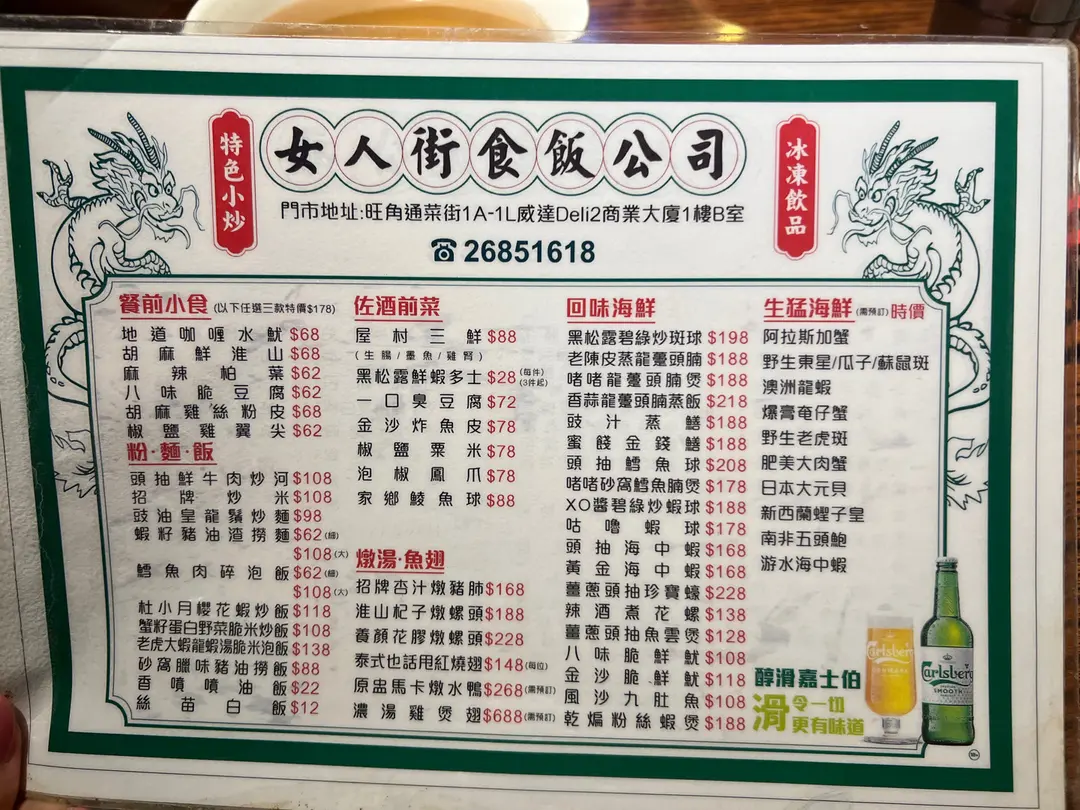 特色小炒
女人街食飯公司
冰凍飲品
門市地址:旺角通菜街1A-1L威達Deli2商業大廈1樓B室
☎26851618
餐前小食(以下任選三款特價$178)
地道咖喱水魷$68
胡麻鮮淮山$68
麻辣柏葉$62
八味脆豆腐$62
胡麻雞絲粉皮$68
椒鹽雞翼尖$62
粉·麵·飯
頭抽鮮牛肉炒河$108
招牌炒米$108
豉油皇龍鬚炒麵$98
蝦籽豬油渣撈麵$62(細)
$108(大)
鱈魚肉碎泡飯$62(細)
$108(大)
杜小月櫻花蝦炒飯$118
蟹籽蛋白野菜脆米炒飯$108
老虎大蝦龍蝦湯脆米泡飯$138
砂窩臘味豬油撈飯$88
香噴噴油飯$22
絲苗白飯$12
佐酒前菜
屋村三鮮$88
(生腸/墨魚/雞腎)
黑松露鮮蝦多士$28(每件)(3件起)
一口臭豆腐$72
金沙炸魚皮$78
椒鹽粟米$78
泡椒鳳爪$78
家鄉鯪魚球$88
燉湯·魚翅
招牌杏汁燉豬肺$168
淮山杞子燉螺頭$188
養顏花膠燉螺頭$228
泰式也話甩紅燒翅$148(每位)
原盅馬卡燉水鴨$268(需預訂)
濃湯雞煲翅$688(需預訂)
回味海鮮
黑松露碧綠炒斑球$198
老陳皮蒸龍躉頭腩$188
啫啫龍躉頭腩煲$188
香蒜龍躉頭腩蒸飯$218
豉汁蒸鱔$188
蜜餞金錢鱔$188
頭抽鱈魚球$208
啫啫砂窩鱈魚腩煲$178
XO醬碧綠炒蝦球$188
咕嚕蝦球$178
頭抽海中蝦$168
黃金海中蝦$168
薑蔥頭抽珍寶蠔$228
辣酒煮花螺$138
薑蔥頭抽魚雲煲$128
八味脆鮮魷$108
金沙脆鮮魷$118
風沙九肚魚$108
乾煸粉絲蝦煲$188
生猛海鮮(需預訂)時價
阿拉斯加蟹
野生東星/瓜子/蘇鼠斑
澳洲龍蝦
爆膏奄仔蟹
野生老虎斑
肥美大肉蟹
日本大元貝
新西蘭蟶子皇
南非五頭鮑
游水海中蝦
醇滑嘉士伯
滑令一切
更有味道
Carlsberg
Carlsberg
SMOOTH
18+